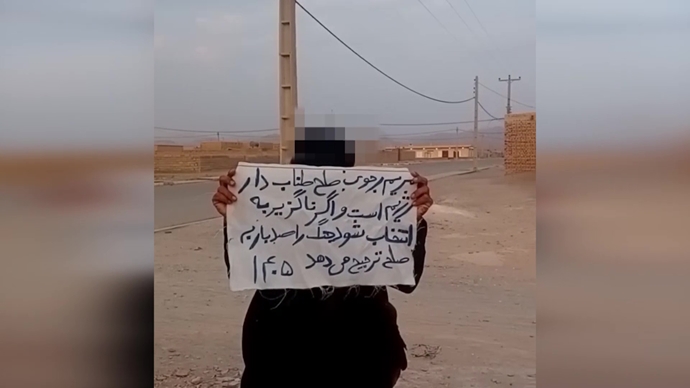 مریم رجوی: صلح طناب دار
رژیم است و اگر ناگزیر به
انتخاب شود را صد بار به
صلح ترجیح می دهد